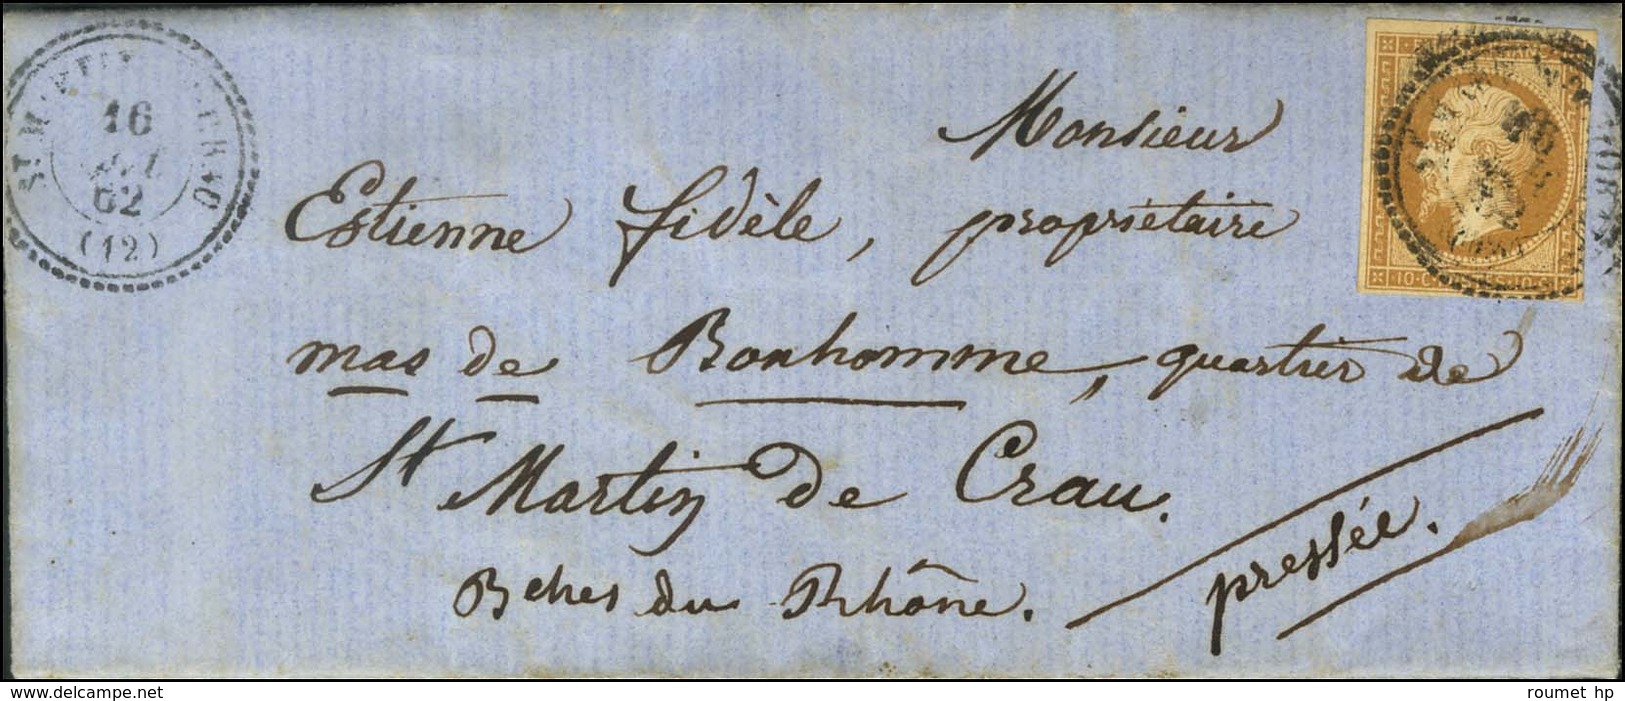 16
62
(12)
Monsieur
Estienne fidèle, propriétaire
mas de Bonhomme, quartier de
St Martin de Crau.
Bches du Rhône.
pressée.
10 C
delcampe.net
roumet hp